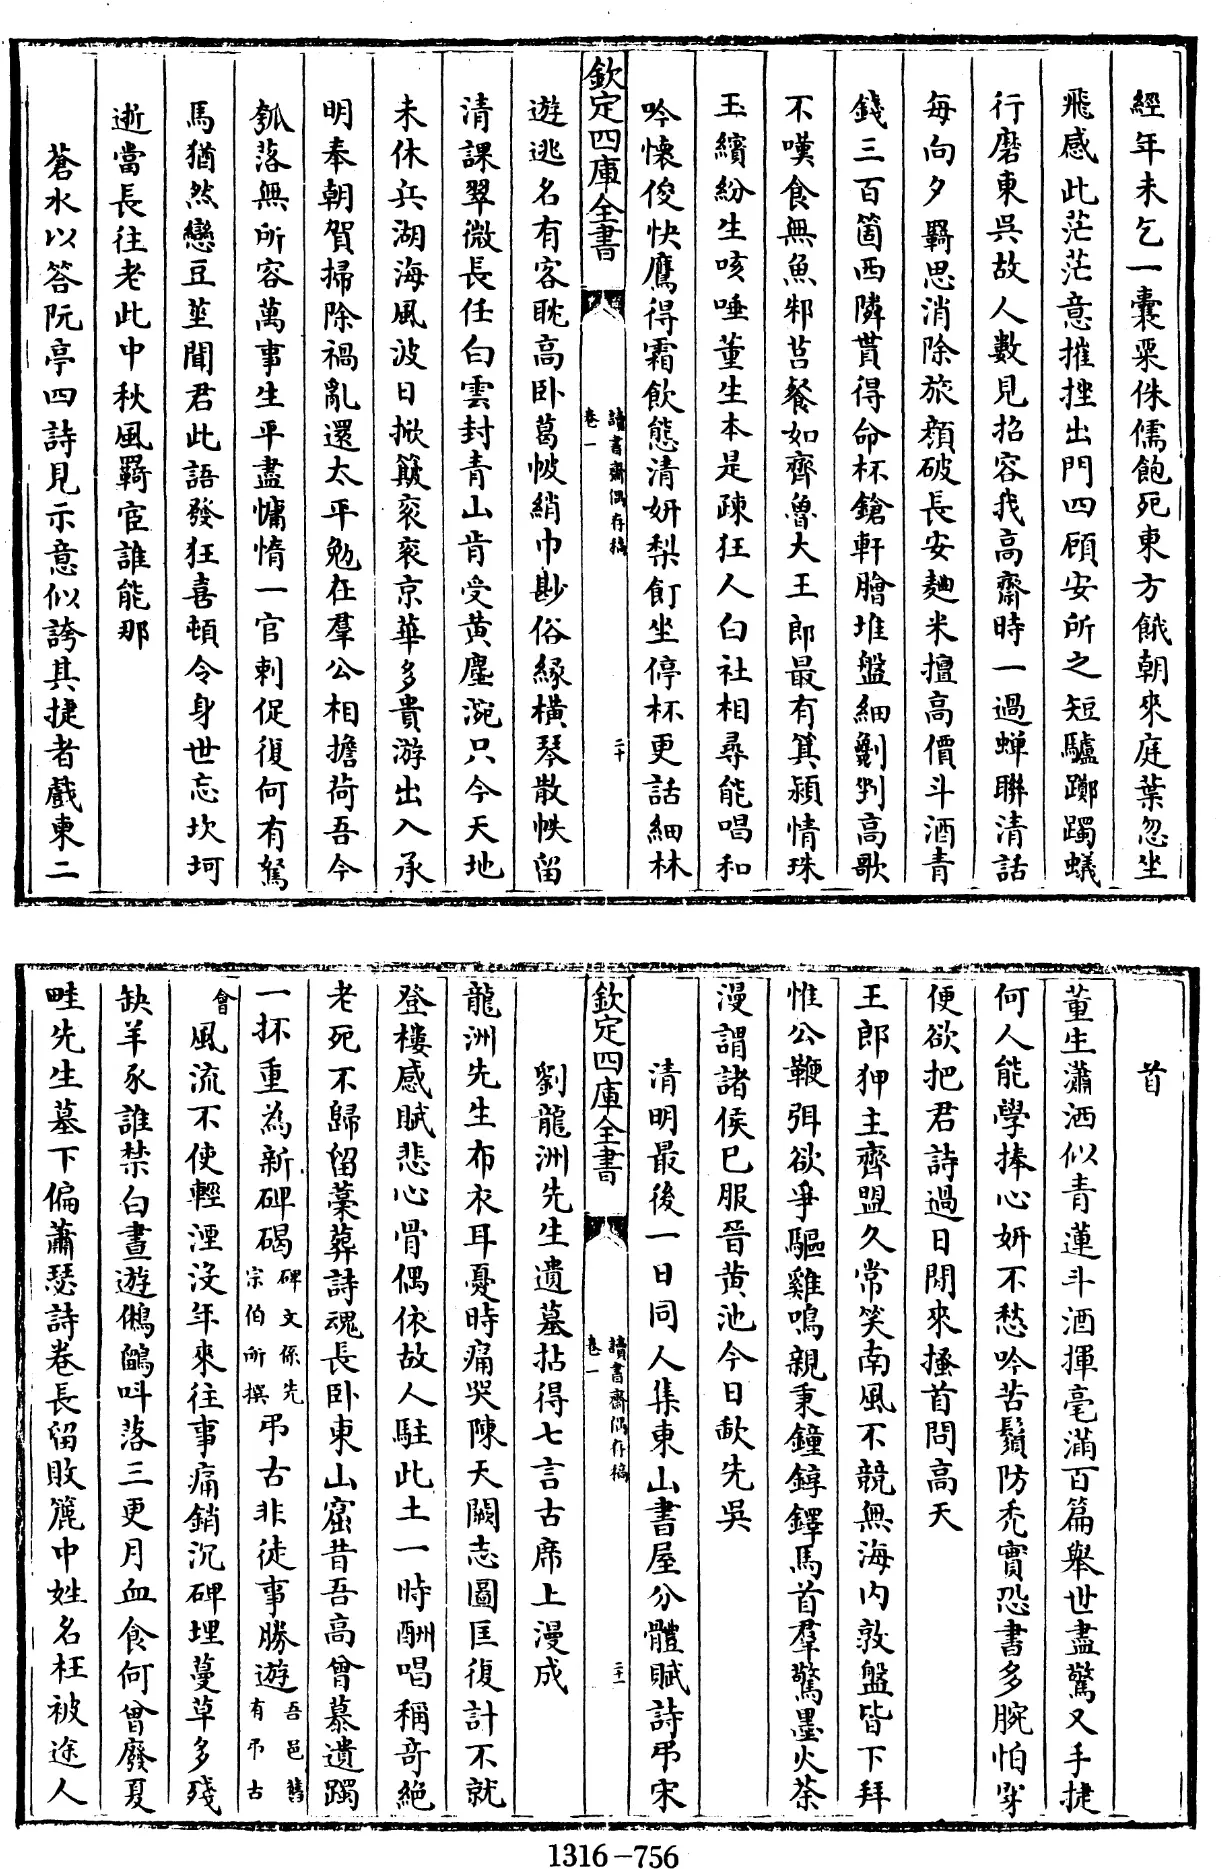 經年未乞一囊粟侏儒飽死東方餓朝來庭葉忽坐
飛感此茫茫意摧挫出門四顧安所之短驢躑躅蟻
行磨東吳故人數見招容我高齋時一過蟬聯清話
每向夕羇思消除旅顏破長安麯米擅高價斗酒青
錢三百箇西隣貰得命杯鎗軒膾堆盤細劙剉高歌
不嘆食無魚邾莒餐如齊魯大王郎最有箕潁情珠
玉繽紛生咳唾董生本是疎狂人白社相尋能唱和
吟懷俊快鷹得霜飲態清妍梨飣坐停杯更話細林
欽定四庫全書
讀書齋偶存稿
卷一
二十
遊逃名有客眈高卧葛帔綃巾尠俗緣橫琴散帙留
清課翠微長任白雲封青山肯受黃塵涴只今天地
未休兵湖海風波日掀簸衮衮京華多貴游出入承
明奉朝賀掃除禍亂還太平勉在羣公相擔荷吾今
瓠落無所容萬事生平盡慵惰一官刺促復何有駑
馬猶然戀豆莝聞君此語發狂喜頓令身世忘坎坷
逝當長往老此中秋風羇宦誰能那
蒼水以答阮亭四詩見示意似誇其捷者戲東二
首
董生瀟洒似青蓮斗酒揮毫滿百篇舉世盡驚叉手捷
何人能學捧心妍不愁吟苦鬚防禿實恐書多腕怕穿
便欲把君詩過日閒來搔首問高天
王郎狎主齊盟久常笑南風不競無海内敦盤皆下拜
惟公鞭弭欲爭驅雞鳴親秉鐘錞鐸馬首羣驚墨火荼
漫謂諸侯已服晉黄池今日歃先吳
清明最後一日同人集東山書屋分體賦詩弔宋
欽定四庫全書
讀書齋偶存稿
卷一
二十一
劉龍洲先生遺墓拈得七言古席上漫成
龍洲先生布衣耳憂時痛哭陳天闕志圖匡復計不就
登樓感賦悲心骨偶依故人駐此土一時酬唱稱奇絶
老死不歸留藁葬詩魂長卧東山窟昔吾高曾慕遺躅
一抔重為新碑碣碑文係先宗伯所撰弔古非徒事勝遊吾邑舊有弔古
會風流不使輕湮没年來往事痛銷沉碑埋蔓草多殘
缺羊豕誰禁白晝遊鵂鶹呌落三更月血食何曾廢夏
畦先生墓下偏蕭瑟詩卷長留敗簏中姓名枉被途人
1316-756